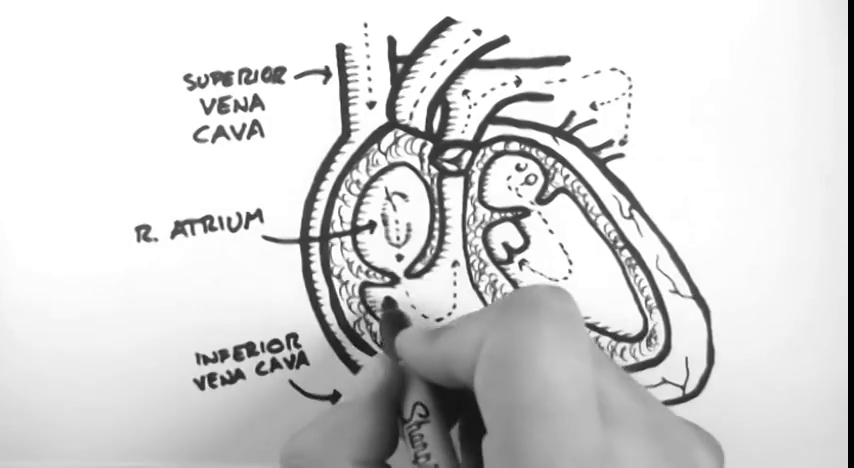 SUPERIOR
VENA
CAVA
R. ATRIUM
INFERIOR
VENA CAVA